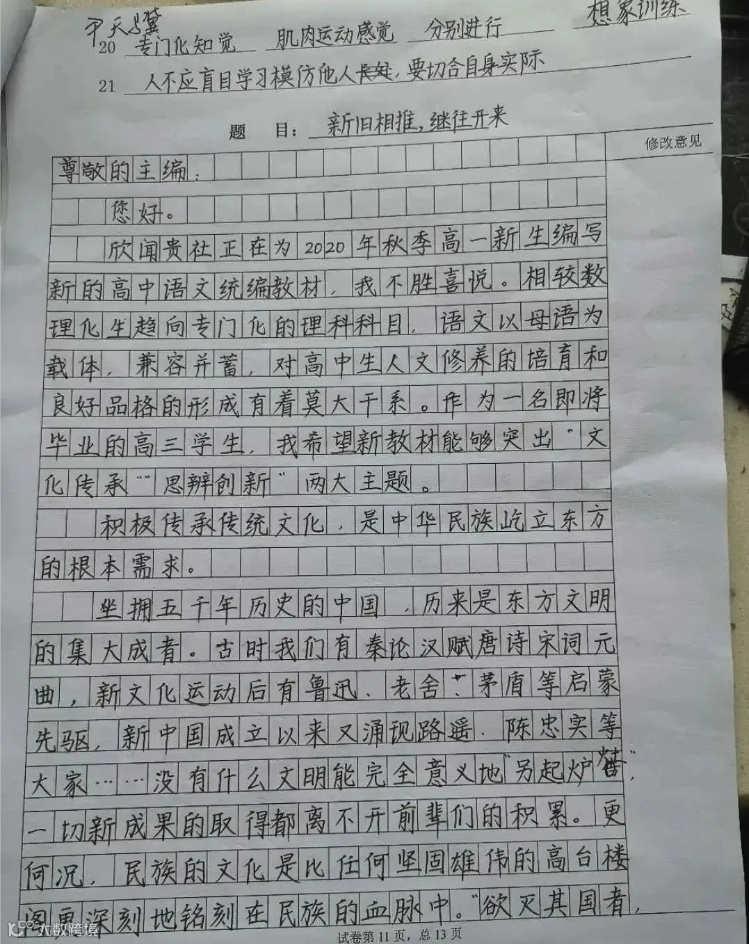 尹天骥
想象训练
20 专门化知觉 肌肉运动感觉 分别进行
21 人不应盲目学习模仿他人长处,要切合自身实际
题 目: 新旧相推,继往开来
修改意见
尊敬的主编:
您好。
欣闻贵社正在为2020年秋季高一新生编写
新的高中语文统编教材,我不胜喜悦。相较数
理化生趋向专门化的理科科目,语文以母语为
载体,兼容并蓄,对高中生人文修养的培育和
良好品格的形成有着莫大干系。作为一名即将
毕业的高三学生,我希望新教材能够突出“文
化传承”“思辨创新”两大主题。
积极传承传统文化,是中华民族屹立东方
的根本需求。
坐拥五千年历史的中国,历来是东方文明
的集大成者。古时我们有秦论汉赋唐诗宋词元
曲,新文化运动后有鲁迅、老舍、茅盾等启蒙
先驱,新中国成立以来又涌现路遥、陈忠实等
大家……没有什么文明能完全意义地“另起炉灶”,
一切新成果的取得都离不开前辈们的积累。更
何况,民族的文化是比任何坚固雄伟的高台楼
阁更深刻地铭刻在民族的血脉中。“欲灭其国者,
试卷第11页,总13页
大数跨境